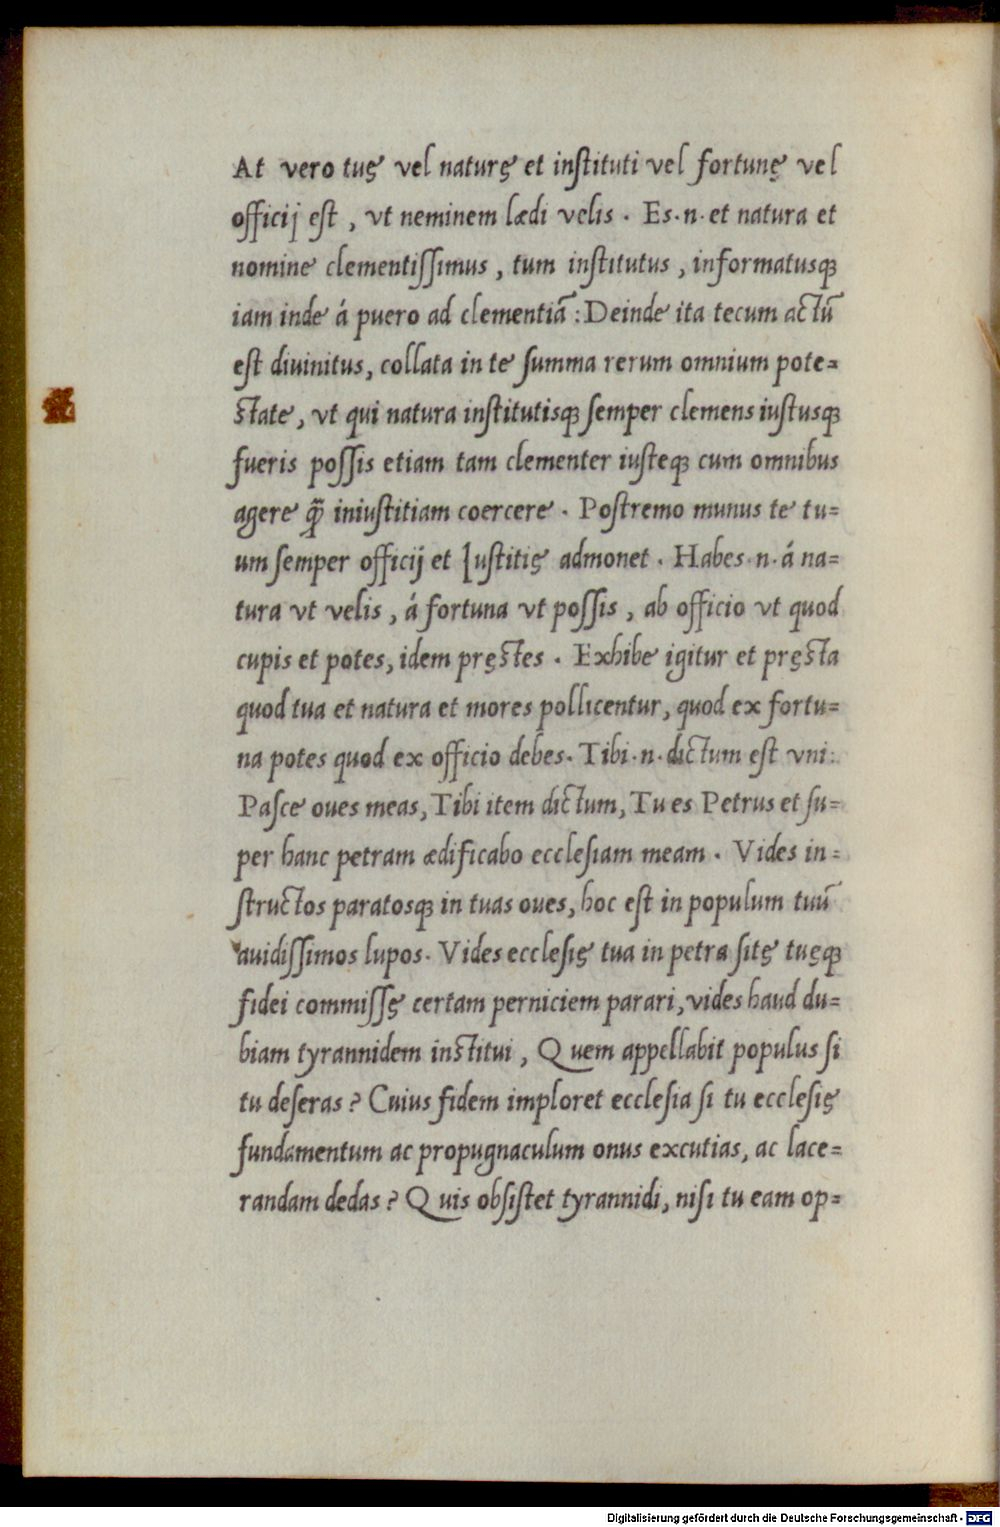 At vero tuę vel naturę et instituti vel fortunę vel
officij est, vt neminem lædi velis. Es.n.et natura et
nomine clementissimus, tum institutus, informatusqꝫ
iam inde á puero ad clementiã: Deinde ita tecum actũ
est diuinitus, collata in te summa rerum omnium pote=
state, vt qui natura institutisqꝫ semper clemens iustusqꝫ
fueris possis etiam tam clementer iusteqꝫ cum omnibus
agere q̃ꝫ iniustitiam coercere. Postremo munus te tu=
um semper officij et Iustitię admonet. Habes.n.á na=
tura vt velis, á fortuna vt possis, ab officio vt quod
cupis et potes, idem pręstes. Exhibe igitur et pręsta
quod tua et natura et mores pollicentur, quod ex fortu=
na potes quod ex officio debes. Tibi.n.dictum est vni:
Pasce oues meas, Tibi item dictum, Tu es Petrus et su=
per hanc petram ædificabo ecclesiam meam. Vides in=
structos paratosqꝫ in tuas oues, hoc est in populum tuũ
auidissimos lupos. Vides ecclesię tua in petra sitę tuęqꝫ
fidei commissę certam perniciem parari, vides haud du=
biam tyrannidem institui, Quem appellabit populus si
tu deseras? Cuius fidem imploret ecclesia si tu ecclesię
fundamentum ac propugnaculum onus excutias, ac lace=
randam dedas? Quis obsistet tyrannidi, nisi tu eam op=
Digitalisierung gefördert durch die Deutsche Forschungsgemeinschaft - DFG